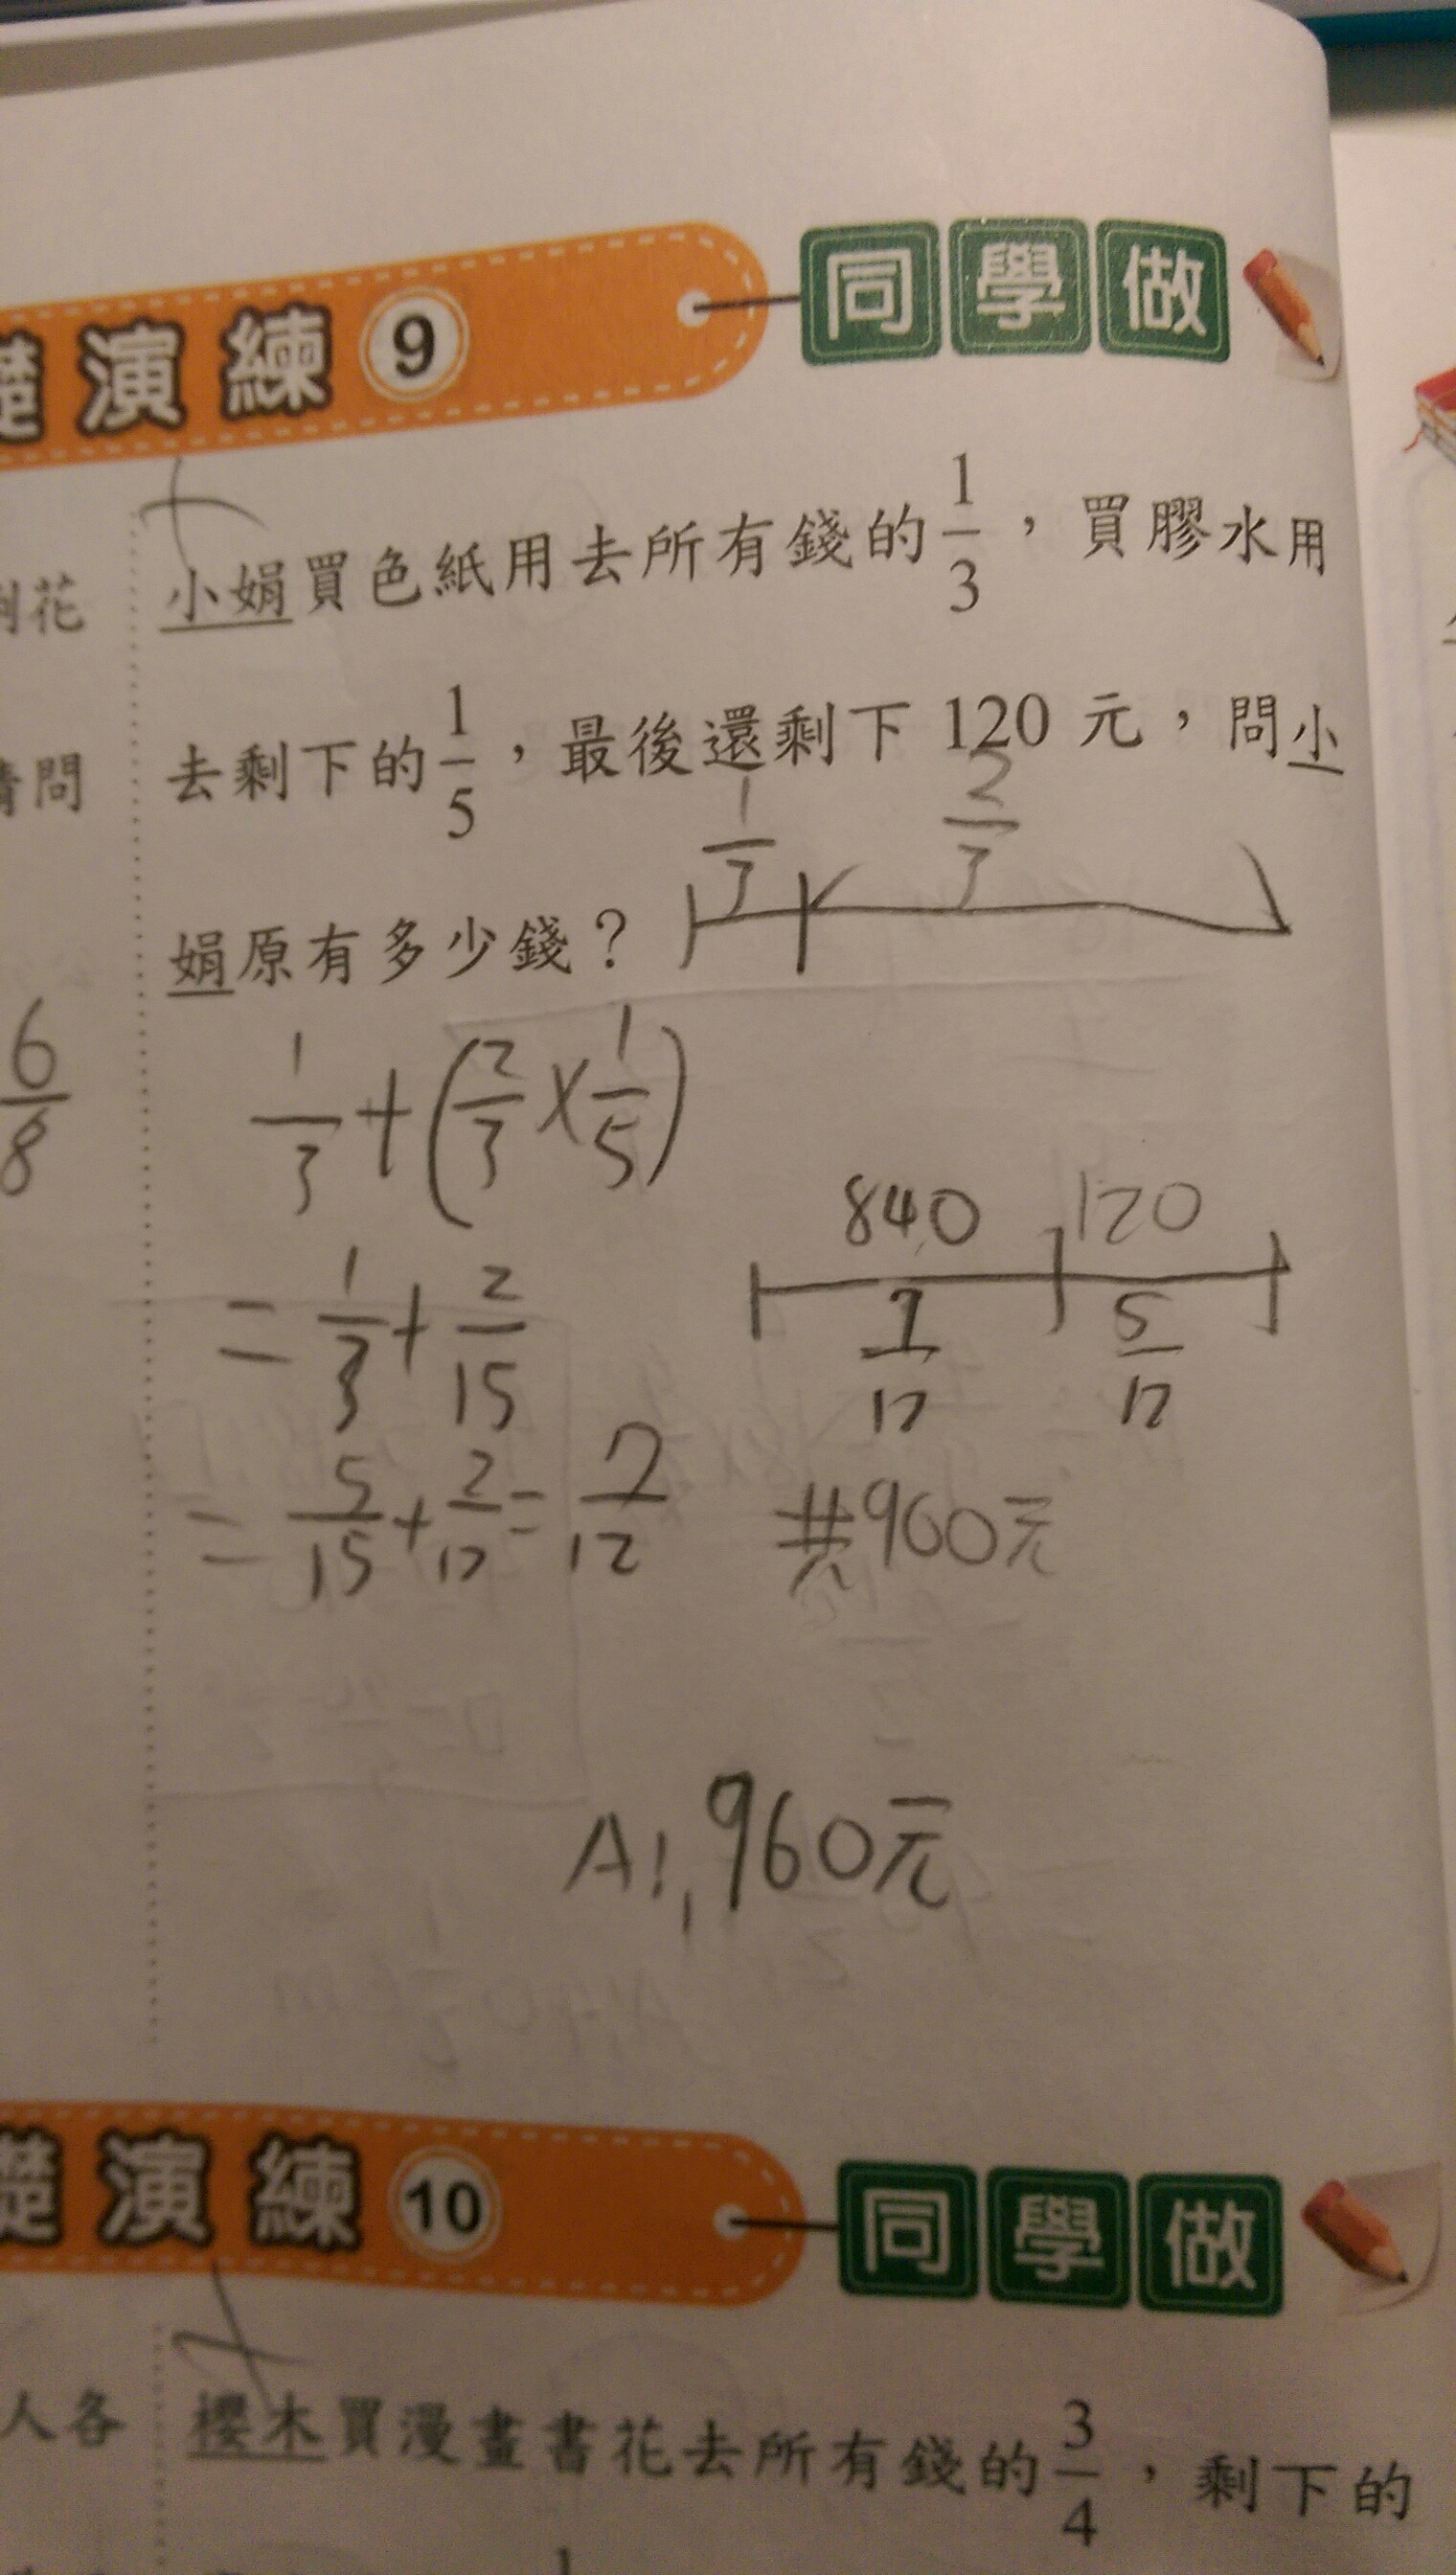 礎演練9 同學做
小娟買色紙用去所有錢的1/3，買膠水用
例花
去剩下的1/5，最後還剩下 120 元，問小
請問
1/3 2/3
娟原有多少錢？
6/8
1/3+(2/3×1/5)
840 120
=1/3+2/15
7/12 5/12
=5/15+2/12=7/12
共960元
A:960元
礎演練10 同學做
人各
櫻木買漫畫書花去所有錢的3/4，剩下的
1